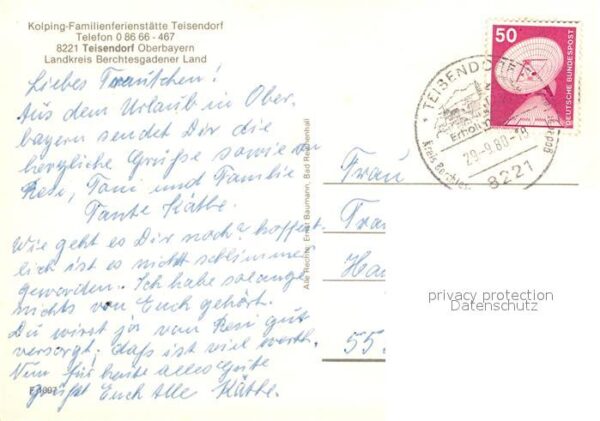 Kolping-Familienferienstätte Teisendorf
Telefon 0 86 66 - 467
8221 Teisendorf Oberbayern
Landkreis Berchtesgadener Land
Liebes Trautchen!
Aus dem Urlaub in Ober
bayern sendet Dir die
herzliche Grüße sowie an
Resi, Toni und Familie
Tante Käthe.
Wie geht es Dir noch? hoffent
lich ist es nicht schlimmer
geworden. Ich habe solange
nichts von Euch gehört.
Du wirst ja von Resi gut
versorgt, daß ist viel werth.
Nun für heute alles Gute
grüßt Euch Alle Käthe.
Alle Rechte: Ernst Baumann, Bad Reichenhall
50
DEUTSCHE BUNDESPOST
TEISENDORF
Erhol
Kreis Berchtes
8221
Frau
Trau
Hau
55
privacy protection
Datenschutz